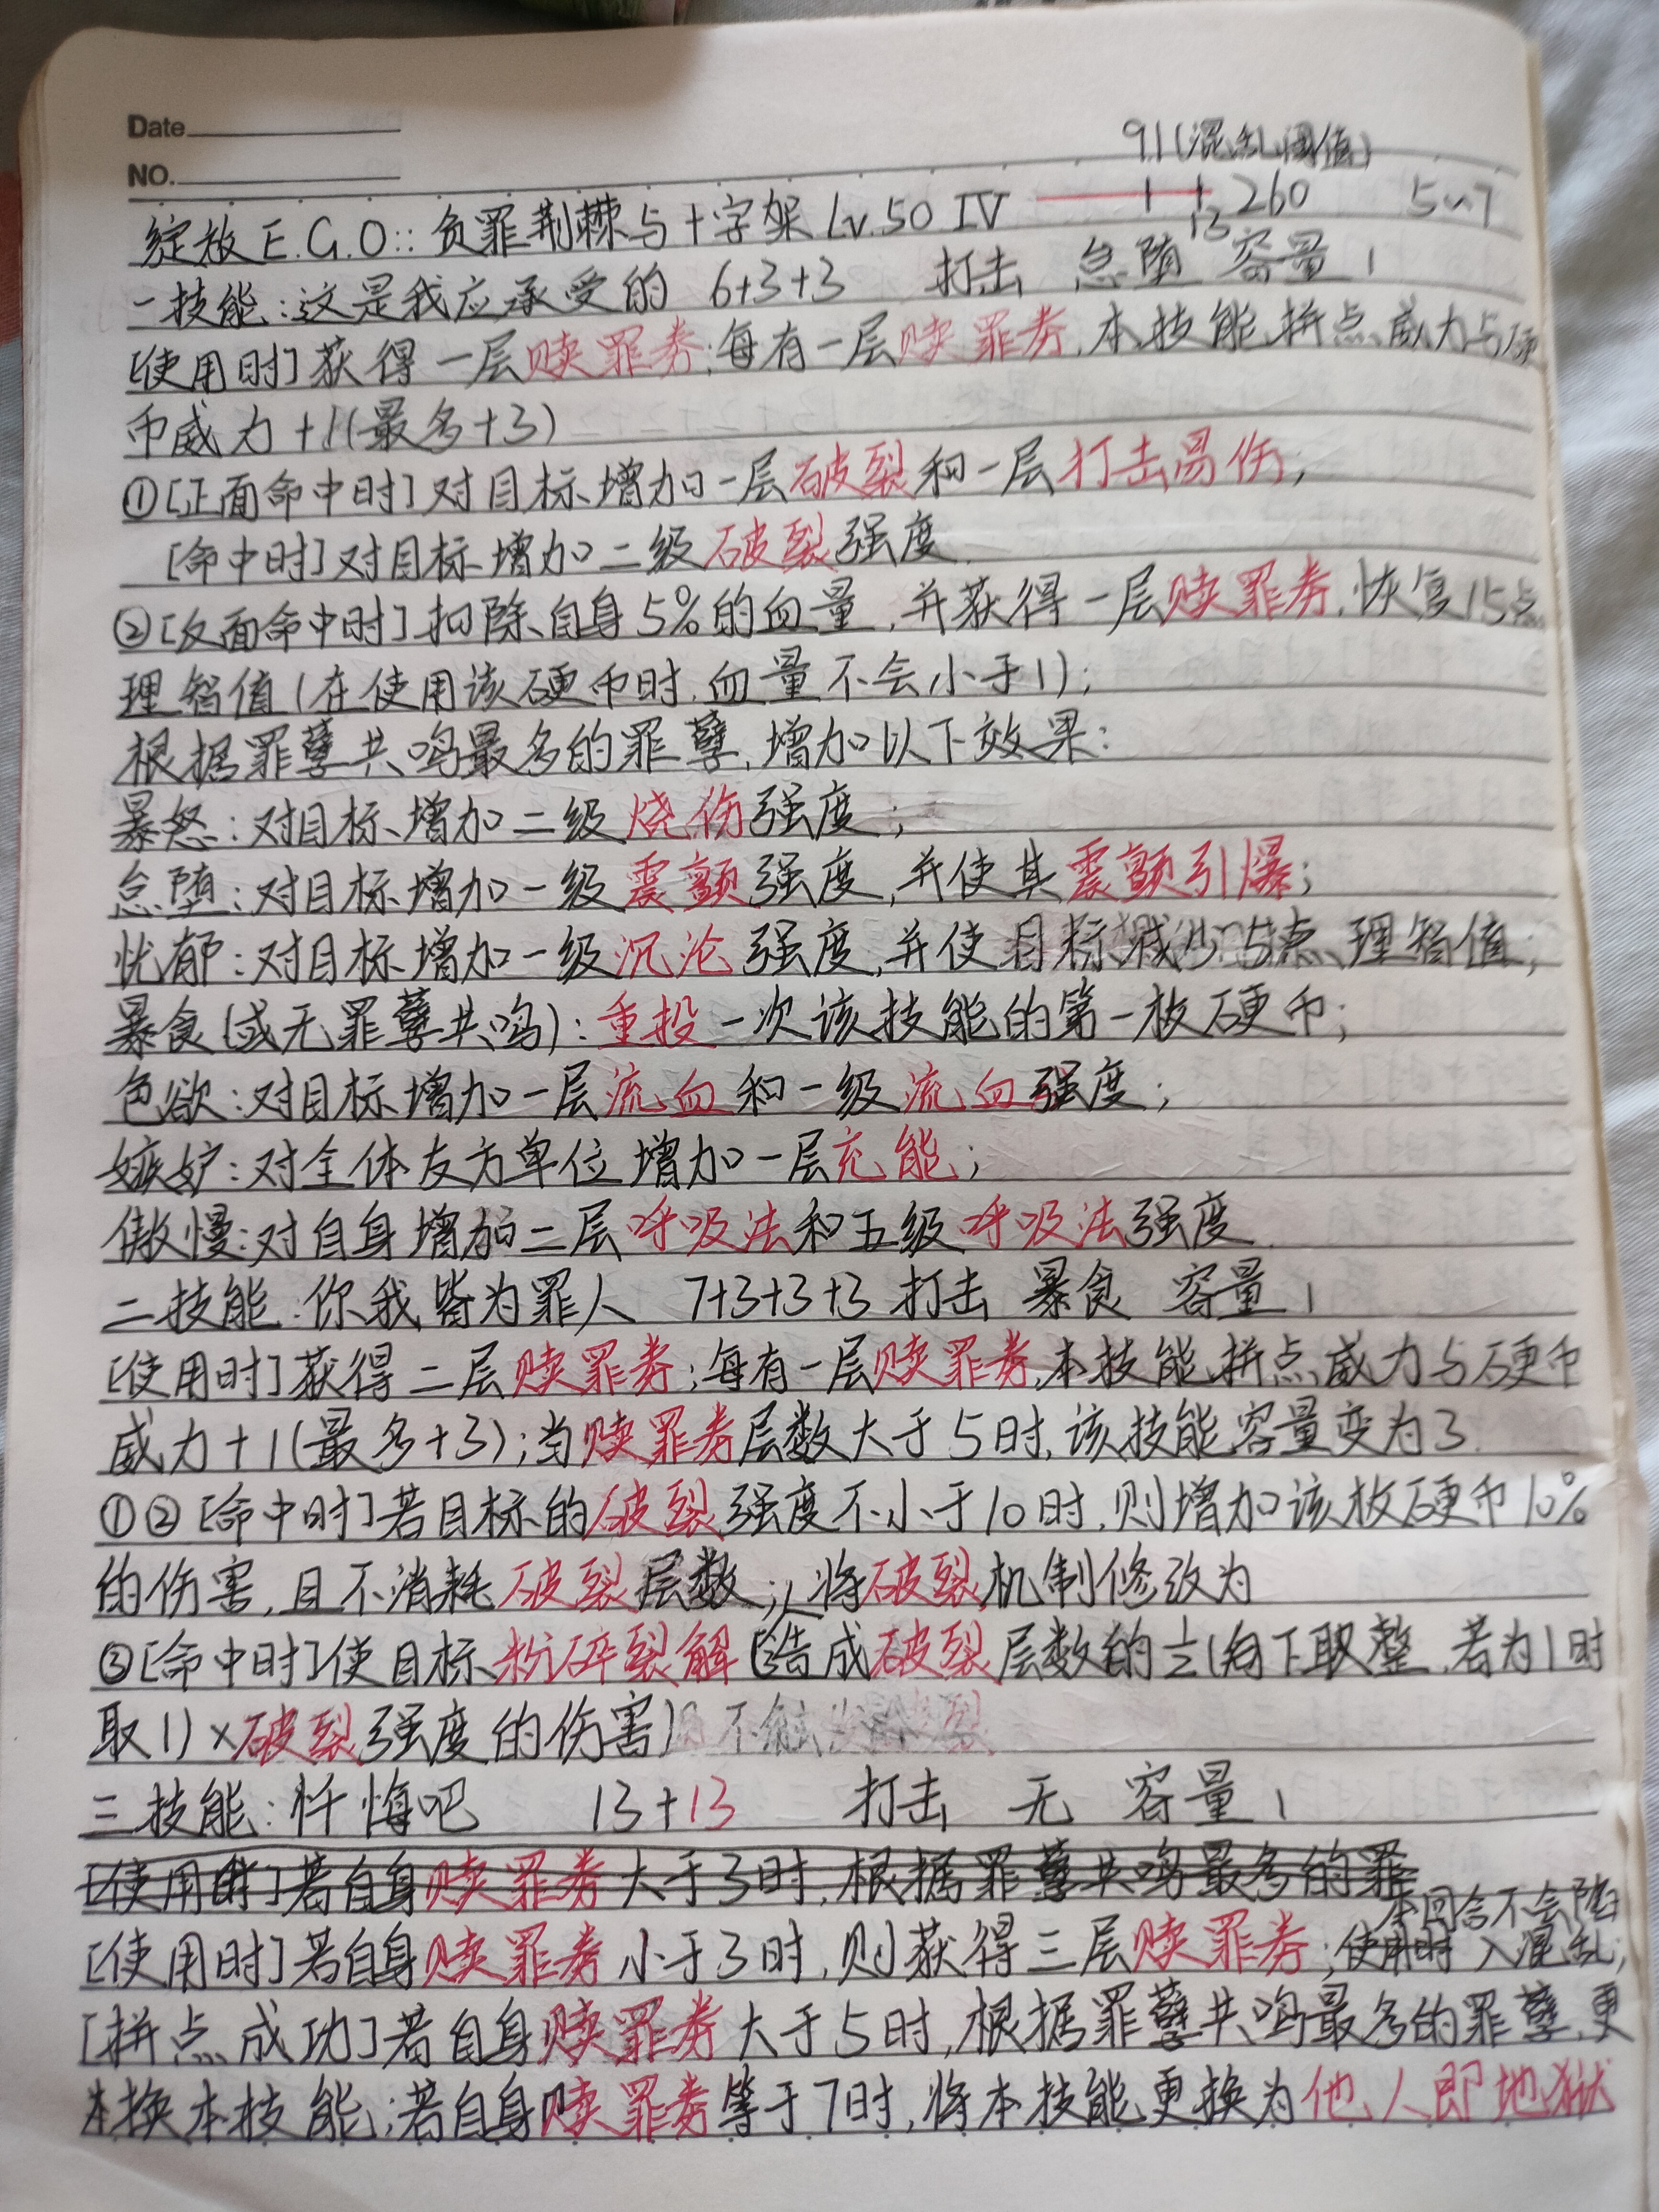 Date
NO.
91(混乱阈值)
绽放E.G.O::负罪荆棘与十字架 Lv.50 IV 13 260 5~7
一技能:这是我应承受的 6+3+3 打击 怠堕 容量1
[使用时]获得一层赎罪券;每有一层赎罪券,本技能拼点威力与硬
币威力+1(最多+3)
①[正面命中时]对目标增加一层破裂和一层打击易伤;
[命中时]对目标增加二级破裂强度.
②[反面命中时]扣除自身5%的血量,并获得一层赎罪券,恢复15点
理智值(在使用该硬币时,血量不会小于1);
根据罪孽共鸣最多的罪孽,增加以下效果:
暴怒:对目标增加二级烧伤强度;
怠堕:对目标增加一级震颤强度,并使其震颤引爆;
忧郁:对目标增加一级沉沦强度,并使目标减少5点理智值;
暴食(或无罪孽共鸣):重投一次该技能的第一枚硬币;
色欲:对目标增加一层流血和一级流血强度;
嫉妒:对全体友方单位增加一层充能;
傲慢:对自身增加二层呼吸法和五级呼吸法强度.
二技能:你我皆为罪人 7+3+3+3 打击 暴食 容量1
[使用时]获得二层赎罪券;每有一层赎罪券,本技能拼点威力与硬币
威力+1(最多+3);当赎罪券层数大于5时,该技能容量变为3.
①②[命中时]若目标的破裂强度不小于10时,则增加该枚硬币10%
的伤害,且不消耗破裂层数;将破裂机制修改为
③[命中时]使目标粉碎裂解(造成破裂层数的½(向下取整,若为1时
取1)×破裂强度的伤害)
三技能:忏悔吧 13+13 打击 无 容量1
[使用时]若自身赎罪券大于3时,根据罪孽共鸣最多的罪
本回合不会陷
[使用时]若自身赎罪券小于3时,则获得三层赎罪券;使用时入混乱;
[拼点成功]若自身赎罪券大于5时,根据罪孽共鸣最多的罪孽,更
换本技能;若自身赎罪券等于7时,将本技能更换为他人即地狱